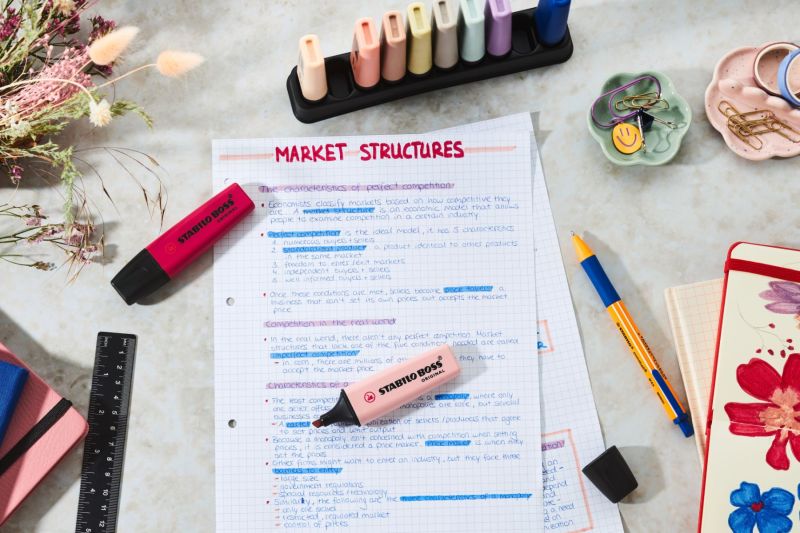 MARKET STRUCTURES
The characteristics of perfect competition
Economists classify markets based on how competitive they
are. A market structure is an economic model that allows
people to examine competition in a certain industry
Perfect competition is the ideal model, it has 5 characteristics
1. numerous buyers + sellers
2. standardized product a product identical to other products
in the same market
3. freedom to enter/exit markets
4. independent buyers + sellers
5. well informed buyers + sellers
Once these conditions are met, sellers become price takers a
business that can't set its own prices but accepts the market
price.
Competition in the real world
In the real world, there aren't any perfect competition. Market
structures that lack one of the five conditions needed are called
imperfect competition
- in corn, there are millions of they have to
accept the market price.
Characteristics of a
The least compet where only
one seller
businesses
- A cartel of sellers/producers that agree
to set prices and limit output
Because a monopoly isn't concerned with competition when setting
prices, it is considered a price maker. price maker is when they
set the prices
Other firms might want to enter an industry, but they face three
barriers to entry
- large size
- government regulations
- special resources/technology
Similarly, the following are the three characteristics of a monopoly
- only one seller
- restricted, regulated market
- control of prices
STABILO BOSS
ORIGINAL
STABILO BOSS
ORIGINAL